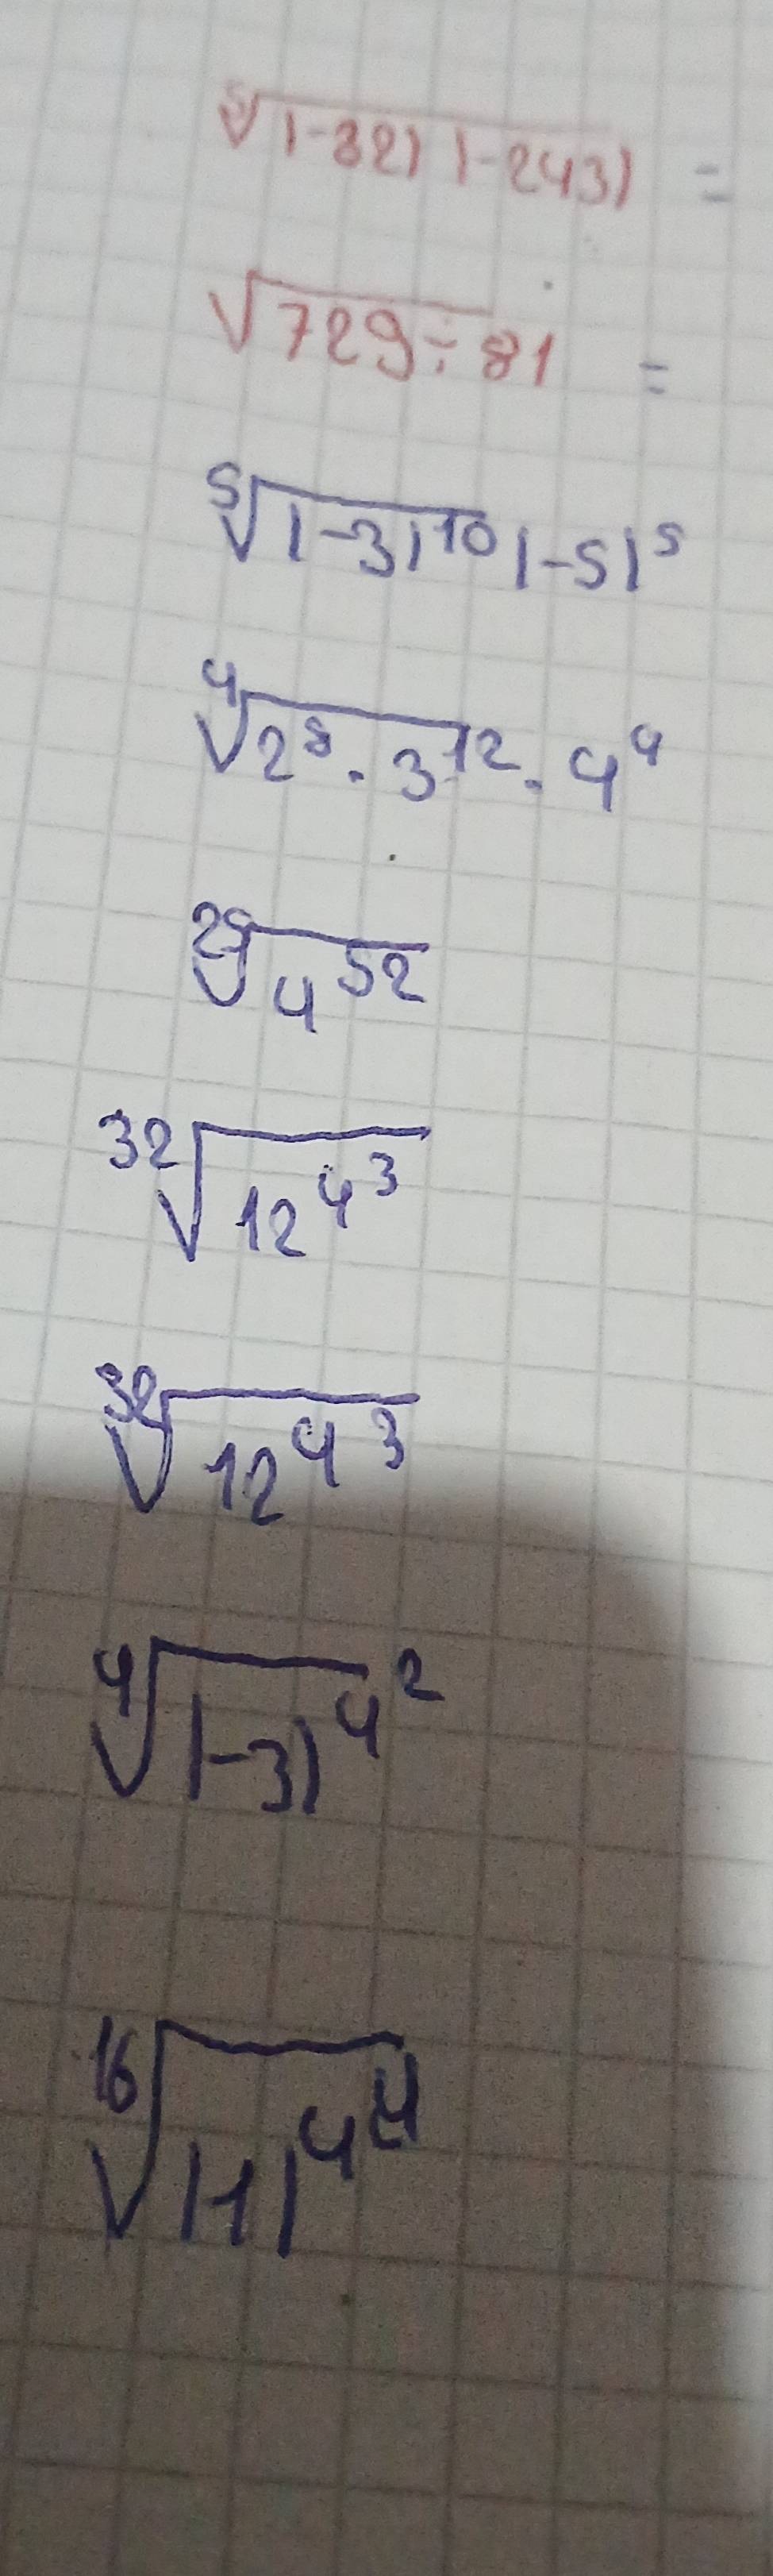 ⁵√(-32) (-243) =
√729÷81 =
⁵√(-3)¹⁰(-5)⁵
⁴√2⁸·3¹²·4⁴
√4⁵²
³²√12^4^3
³²√12^4^3
⁴√(-3)^4^2
¹⁶√(1)^4^4